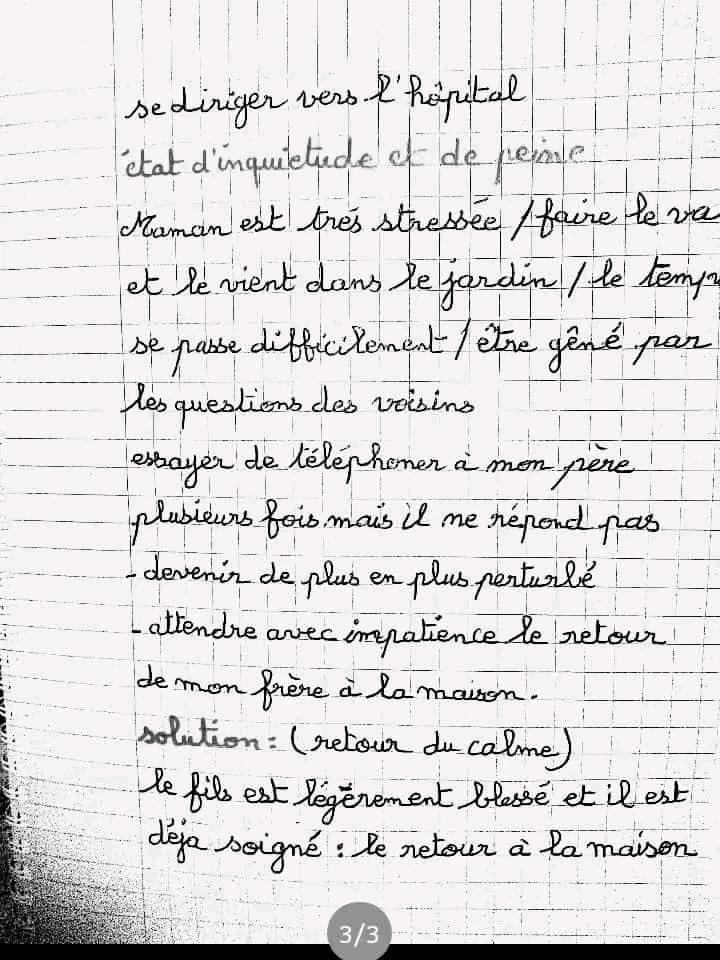 se diriger vers l'hôpital
état d'inquiétude et de peine
Maman est trés stressée / faire le va
et le vient dans le jardin / le temp
se passe difficilement / être gêné par
les questions des voisins
essayer de téléphoner à mon père
plusieurs fois mais il ne répond pas
- devenir de plus en plus perturbé
- attendre avec impatience le retour
de mon frère à la maison.
solution : (retour du calme)
le fils est légèrement blessé et il est
déja soigné : le retour à la maison
3/3